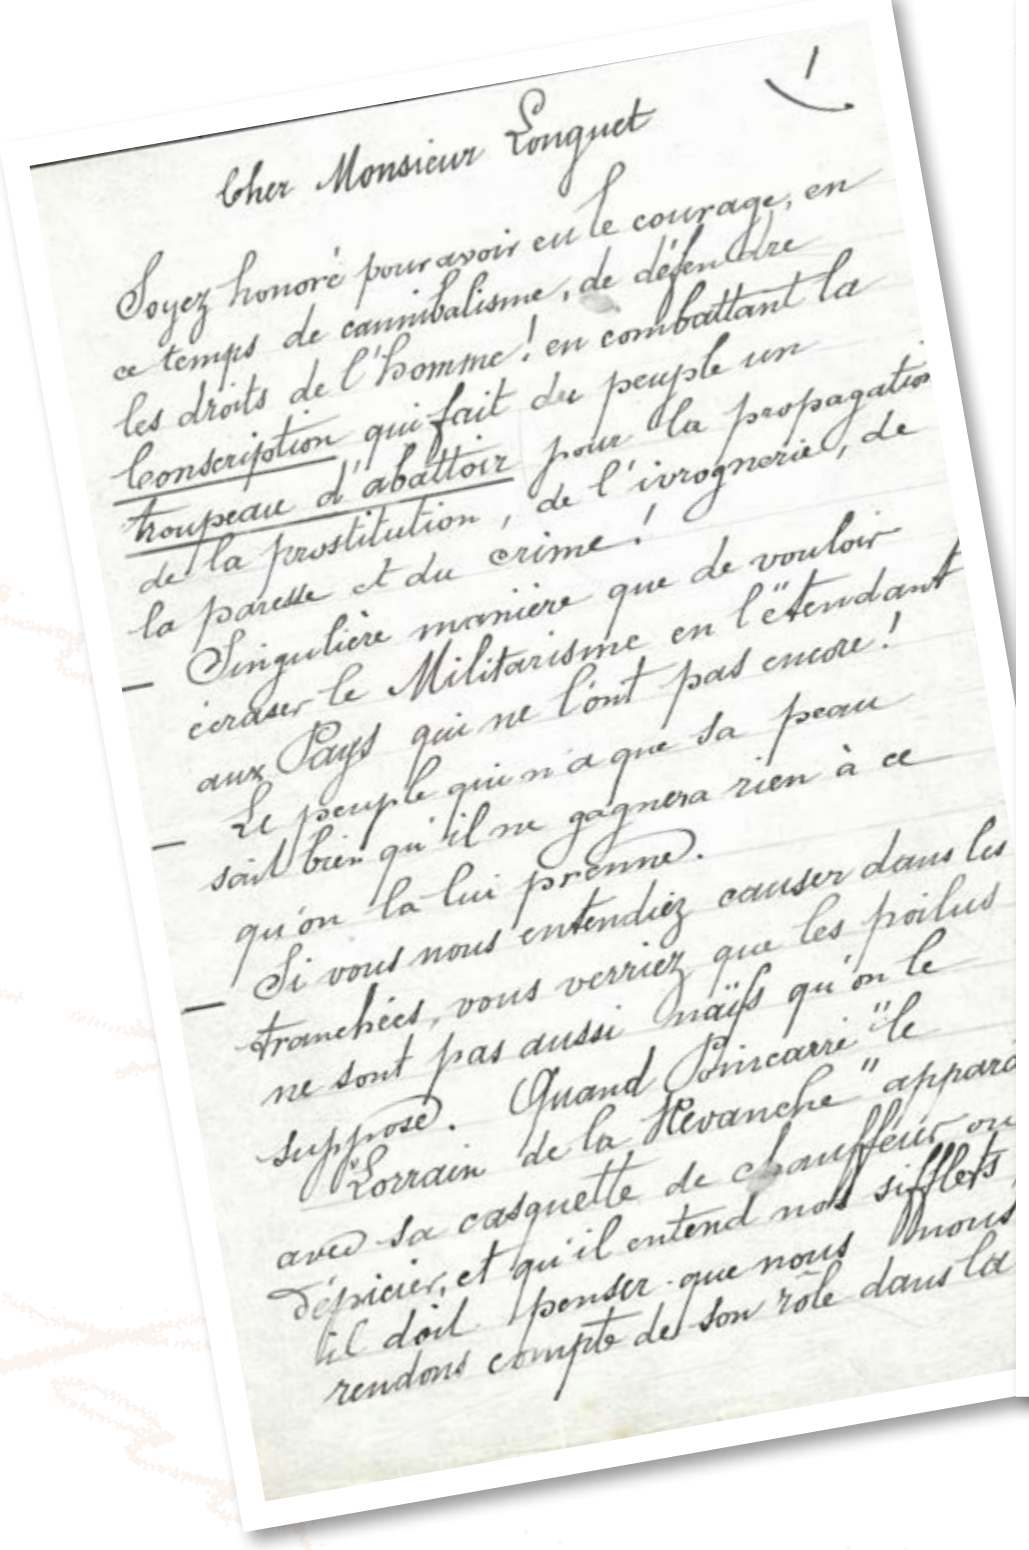 1
Cher Monsieur Longuet
Soyez honoré pour avoir eu le courage, en
ce temps de cannibalisme, de défendre
les droits de l'homme! en combattant la
Conscription qui fait du peuple un
troupeau d'abattoir pour la propagation
de la prostitution, de l'ivrognerie, de
la paresse et du crime!
— Singulière manière que de vouloir
écraser le Militarisme en l'étendant
aux Pays qui ne l'ont pas encore!
— Le peuple qui n'a que sa peau
sait bien qu'il ne gagnera rien à ce
qu'on la lui prenne.
— Si vous nous entendiez causer dans les
tranchées, vous verriez que les poilus
ne sont pas aussi naïfs qu'on le
suppose. Quand Poincarré "le
Lorrain de la Revanche" appara
avec sa casquette de chauffeur ou
d'épicier, et qu'il entend nos sifflets,
il doit penser que nous nous
rendons compte de son rôle dans la